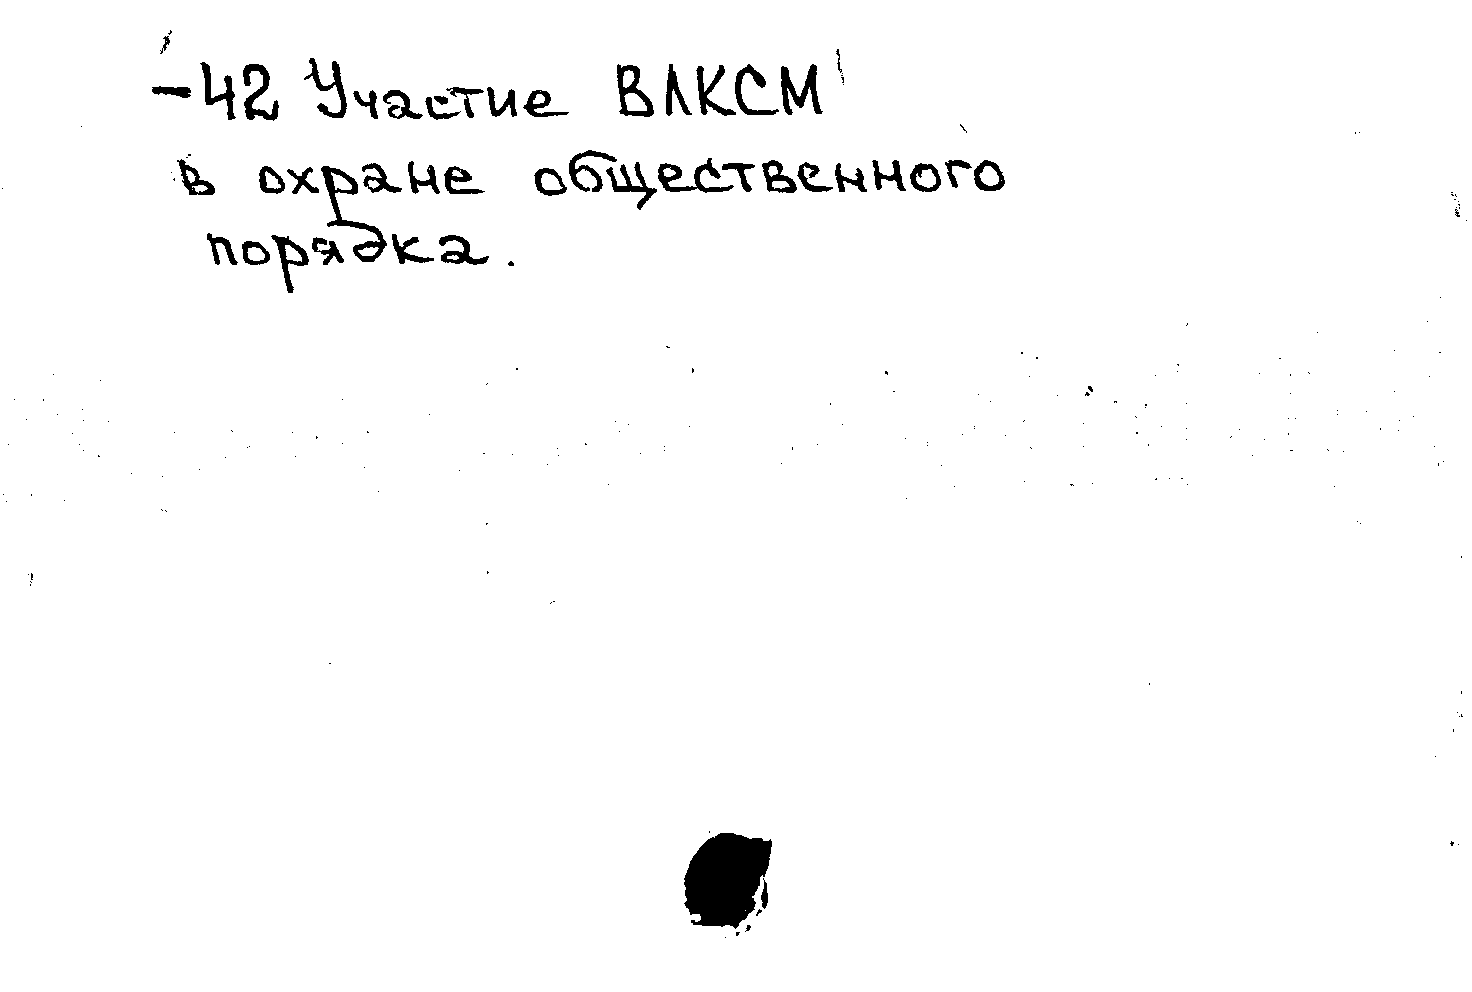 -42 Участие ВЛКСМ
в охране общественного
порядка.